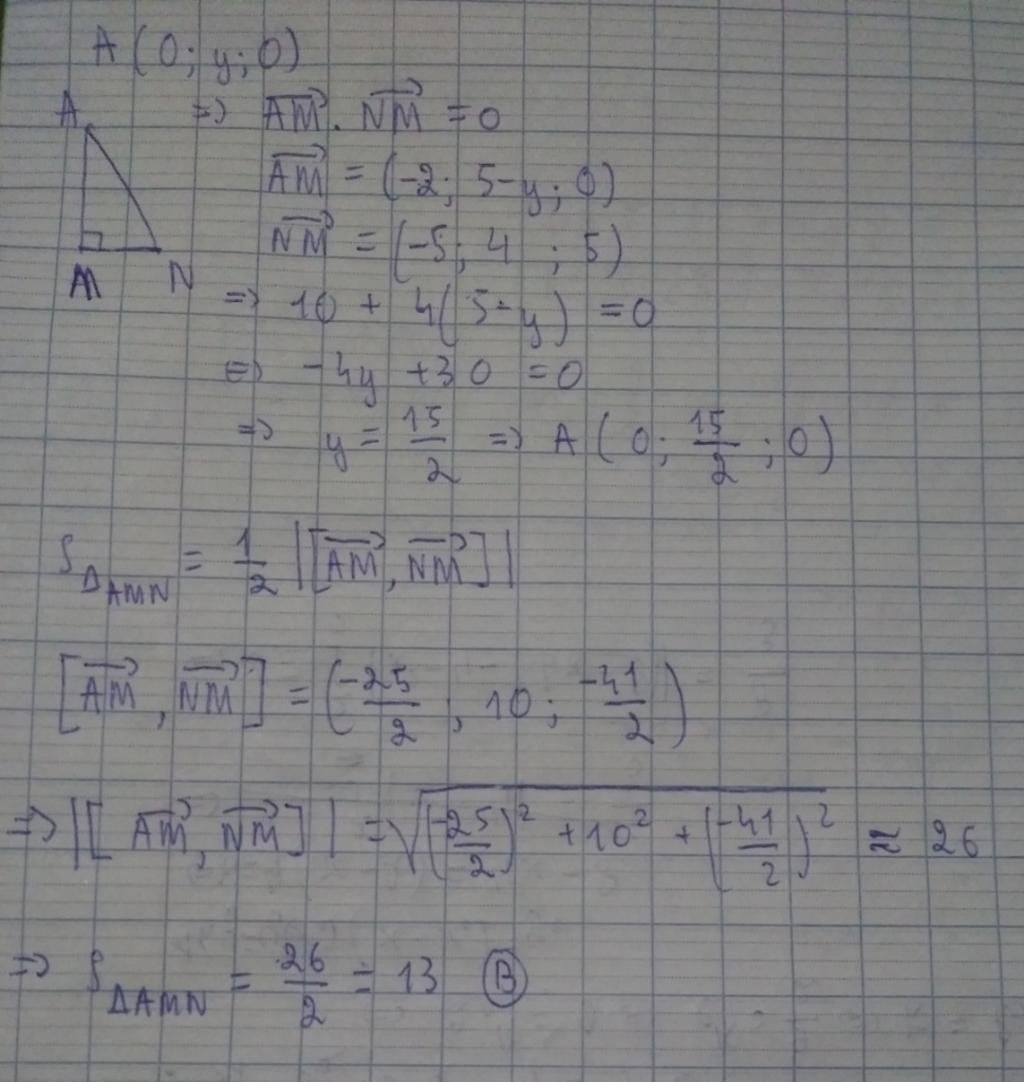 A(0; y; 0)
A
=> $\overrightarrow{AM}$ . $\overrightarrow{NM}$ = 0
$\overrightarrow{AM}$ = (-2; 5-y; 0)
$\overrightarrow{NM}$ = (-5; 4 ; 5)
M N
=> 10 + 4(5-y) = 0
<=> -4y + 30 = 0
=> y = $\frac{15}{2}$ => A(0; $\frac{15}{2}$; 0)
$S_{\Delta AMN}$ = $\frac{1}{2}$ |[$\overrightarrow{AM}$, $\overrightarrow{NM}$]|
[$\overrightarrow{AM}$, $\overrightarrow{NM}$] = ($\frac{-25}{2}$; 10; $\frac{-41}{2}$)
=> |[$\overrightarrow{AM}$, $\overrightarrow{NM}$]| = $\sqrt{\left(\frac{-25}{2}\right)^2 + 10^2 + \left(\frac{-41}{2}\right)^2}$ ≈ 26
=> $S_{\Delta AMN}$ = $\frac{26}{2}$ = 13 Ⓑ